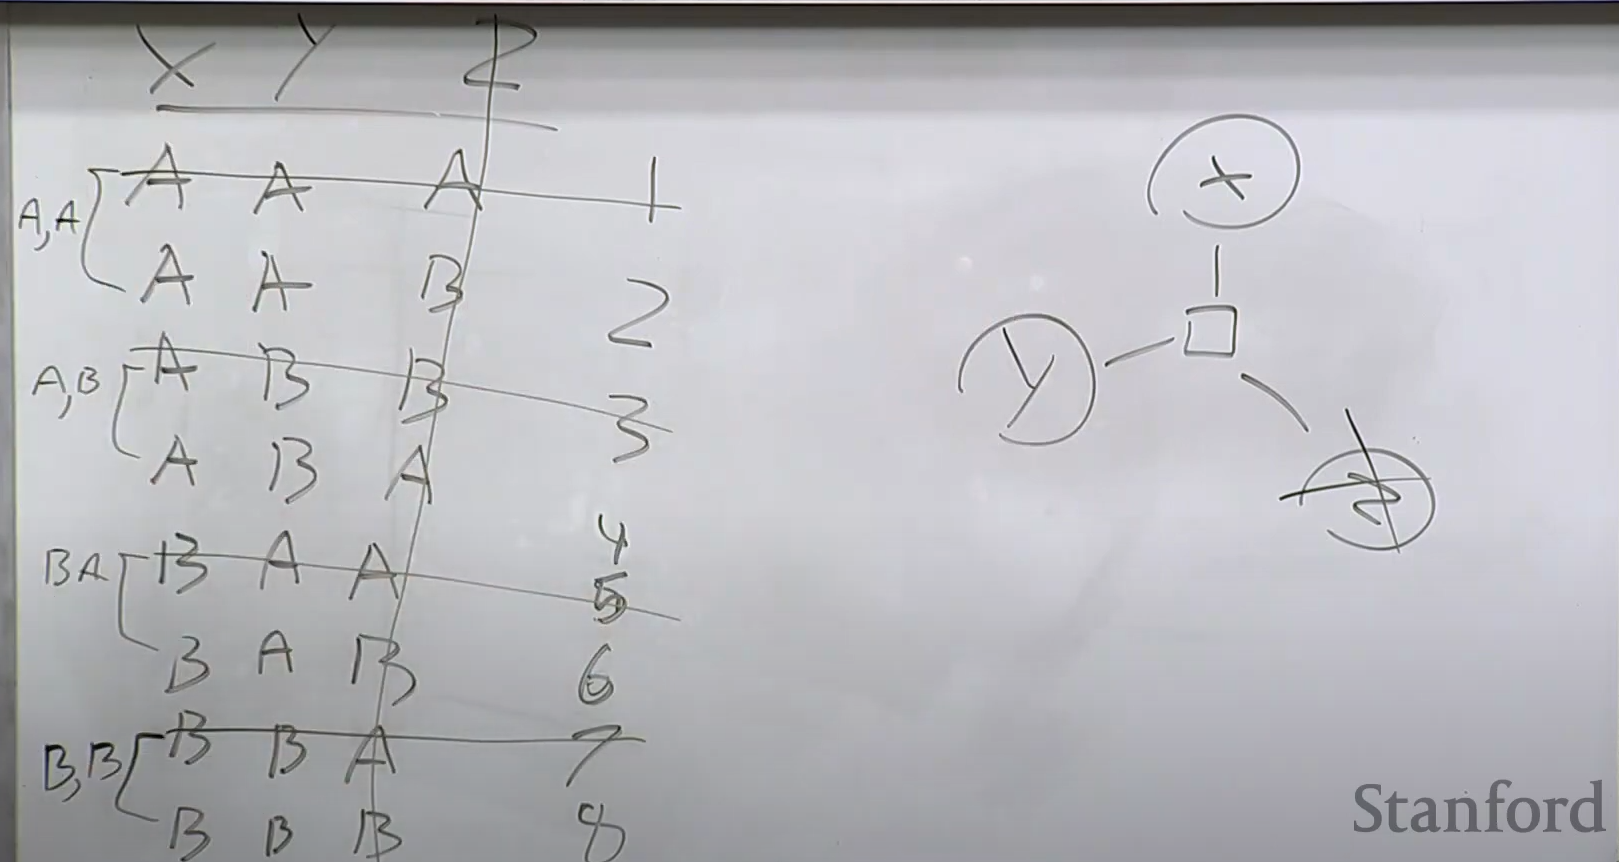 X Y Z
A A A 1
A,A
A A B 2
A B B 3
A,B
A B A 4
B A A 5
BA
B A B 6
B B A 7
B,B
B B B 8
X
Y
Z
Stanford